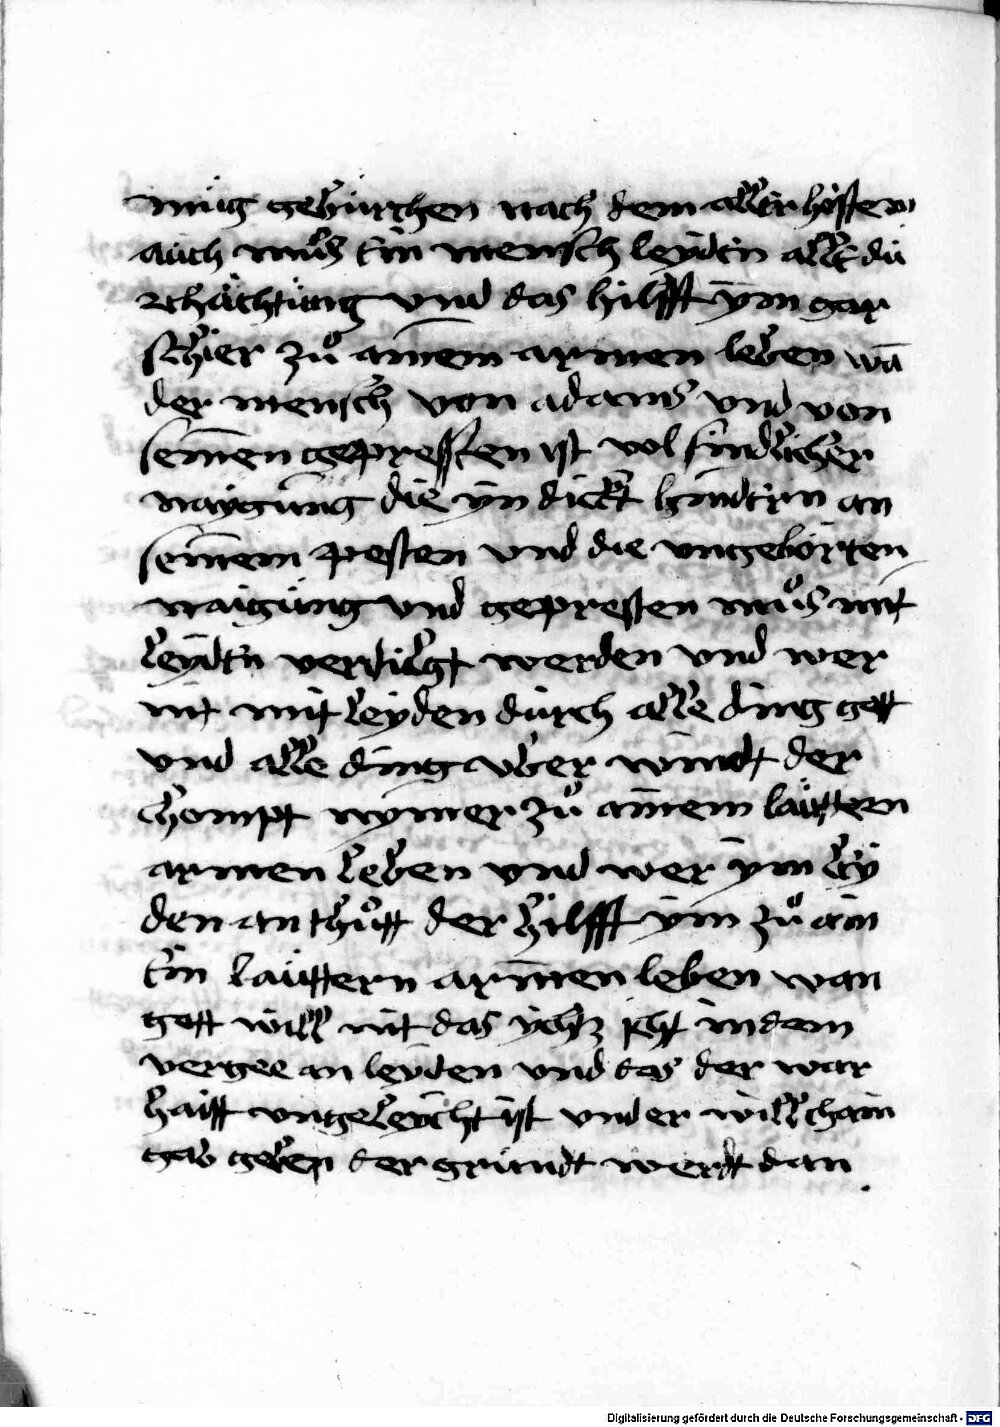 müg gehürchen nach dem aller hösten
auch müs ein mensch leyden alle dü
zchächtüng vnd das hilfft ym gar
schier zů ainem armen leben wā
der mensch von adams vnd von
seinen gepressten ist vol sindlicher
naygüng die yn dickt hindern an
seinem pesten vnd die vngehörten
naigüng vnd gepresten můs mit
leyden vertilgt werden vnd wer
nit mit leyden dürch alle ding gett
vnd alle ding vber windt der
chompt nymer zů ainem laüttern
armen leben vnd wer ym ley
den an thůtt der hilfft ym zů ain
ein laüttern armen leben wan
gott will nit das ycht in dem
vergee an leyden vnd das der war
hait vngeleycht ist vnd er will chain
gab geben der gründt werdt dan
Digitalisierung gefördert durch die Deutsche Forschungsgemeinschaft - DFG